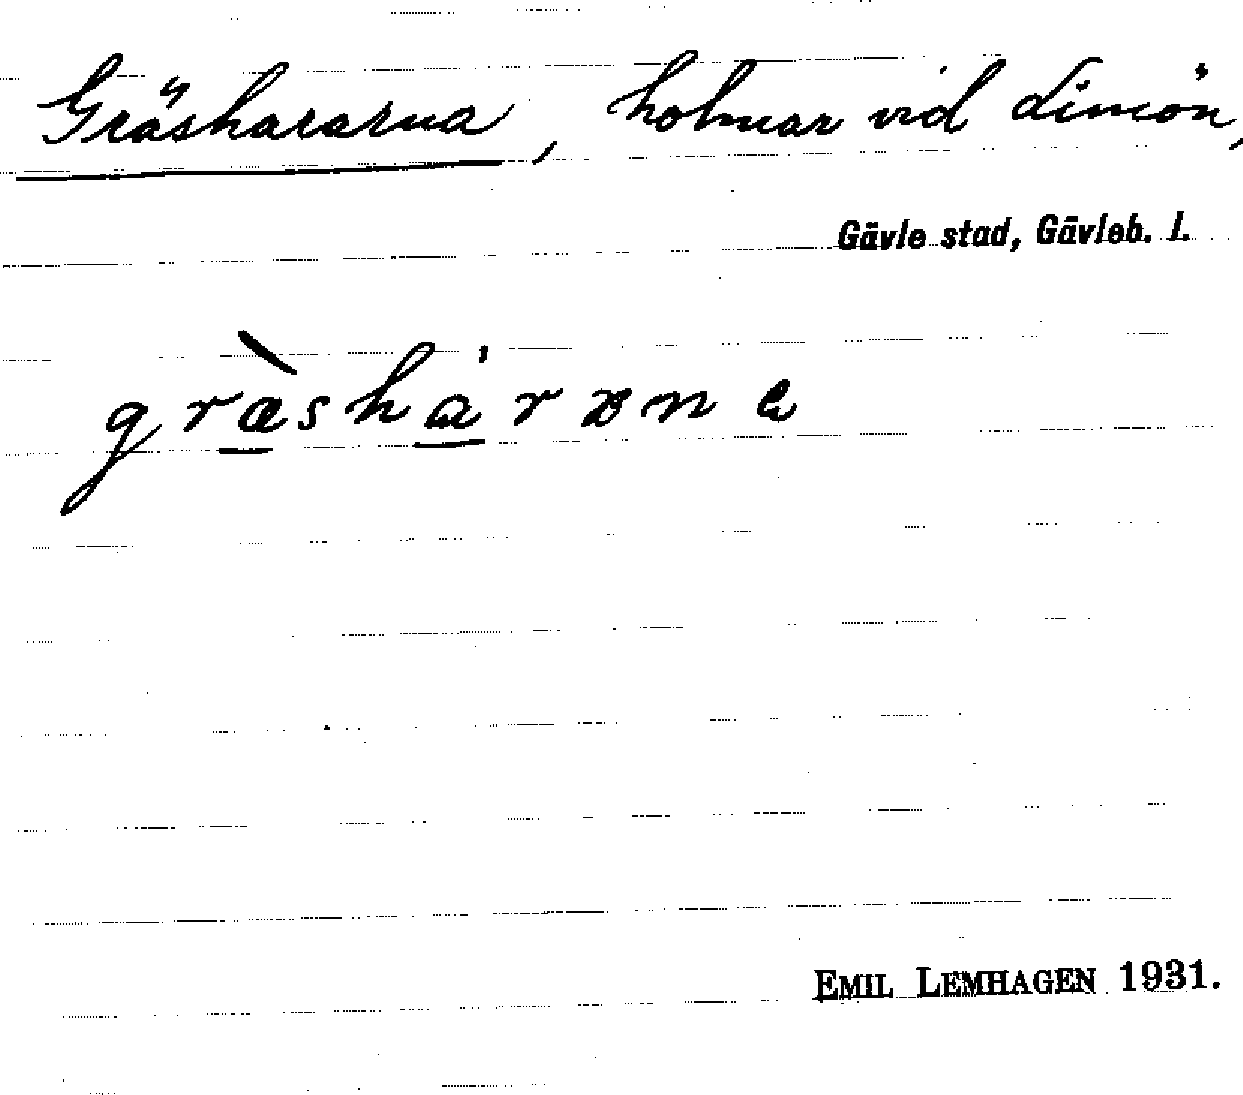 Gräshararna, holmar vid Limön,
Gävle stad, Gävleb. l.
EMIL LEMHAGEN 1931.